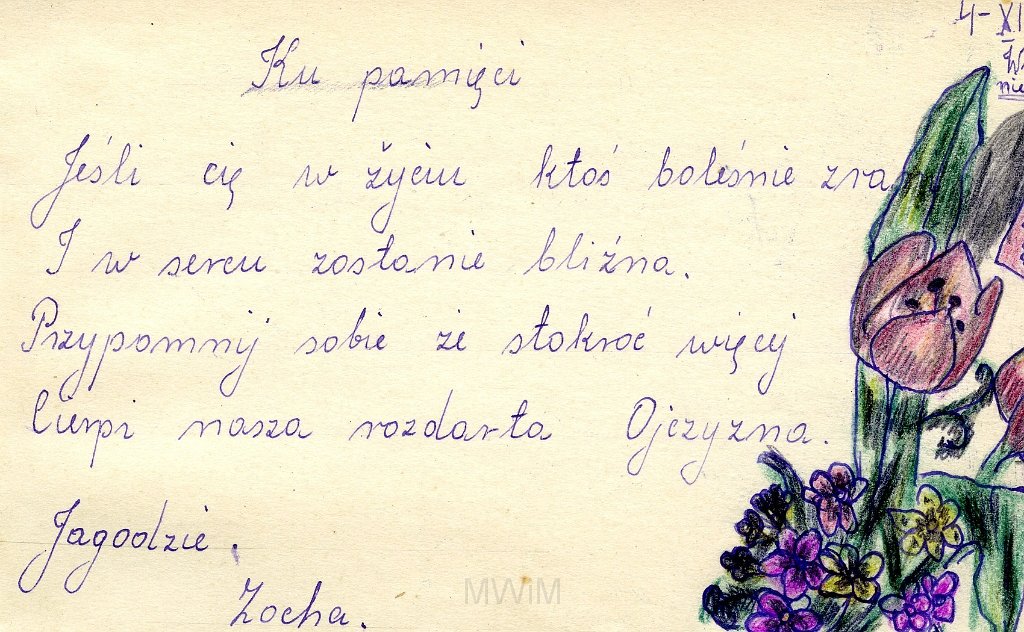 4-XI
Ku pamięci
nie
Jeśli cię w życiu ktoś boleśnie zrani
I w sercu zostanie blizna.
Przypomnij sobie że stokroć więcej
Cierpi nasza rozdarta Ojczyzna.
Jagodzie.
Zocha.
MWiM